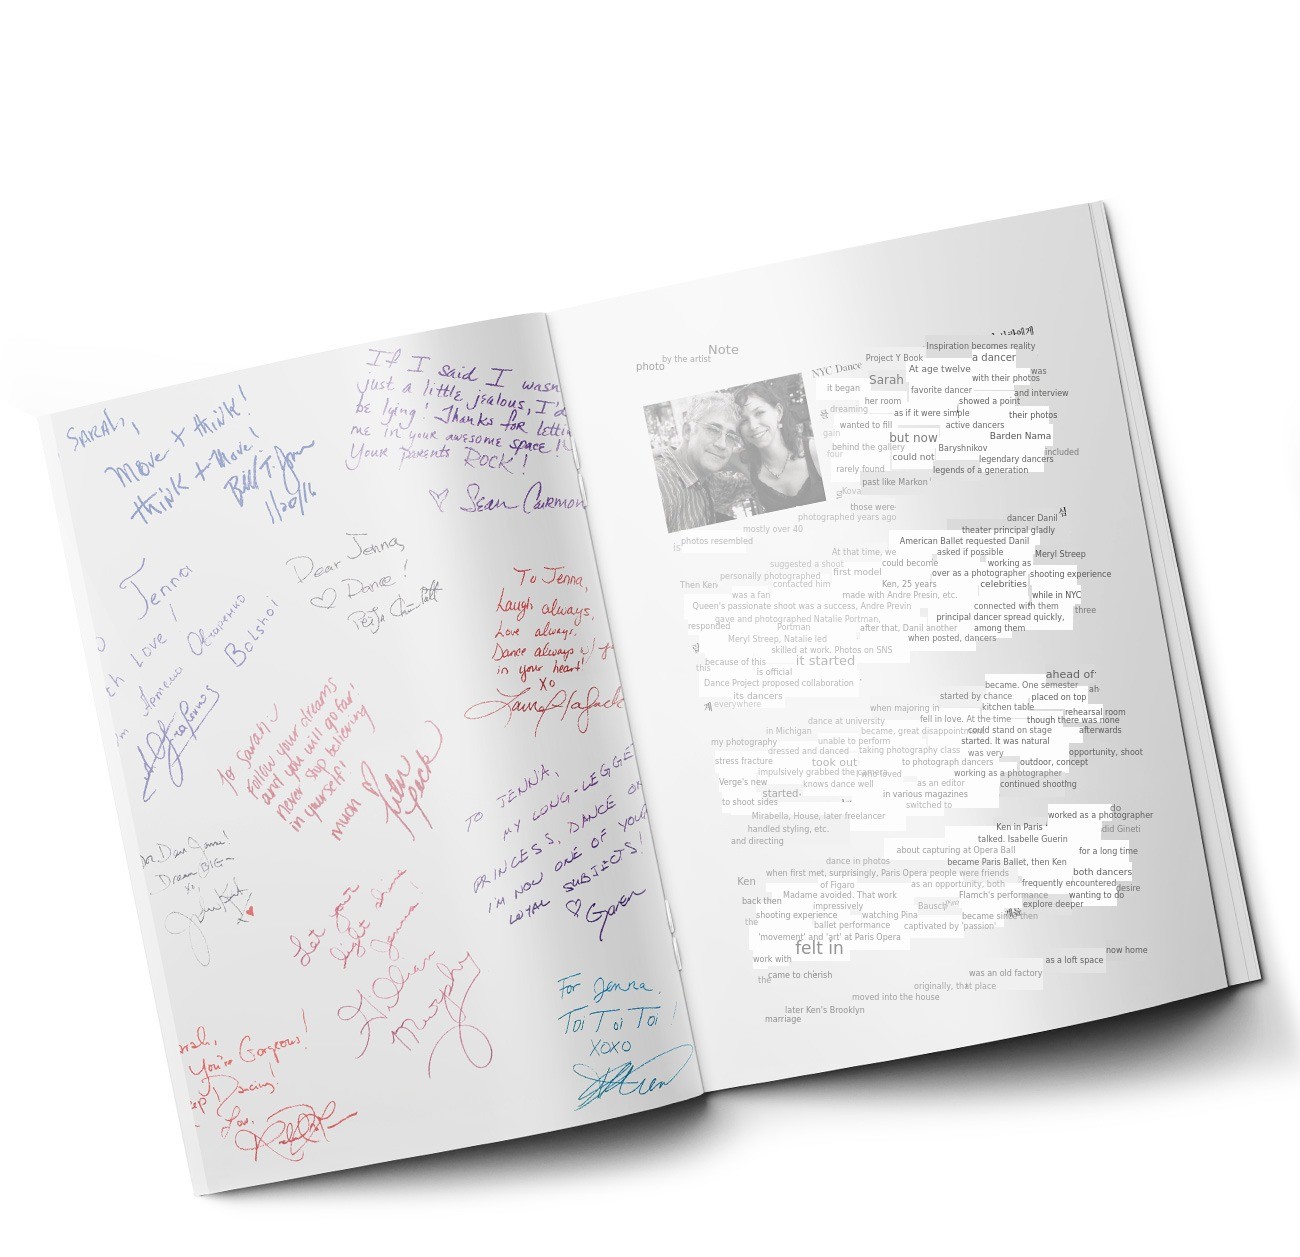 SARAH,
Move + think!
think + Move!
Bill T. Jones
1/20/16
If I said I wasn
just a little jealous, I'd
be lying! Thanks for lettin
me in your awesome space!!
Your parents ROCK!
♡ Sean
Jenna
Love!
Bolshoi
Dear Jenna,
♡ Dance!
To Jenna,
Laugh always,
Love always,
Dance always
in your heart!
XO
To Sarah:
Follow your dreams
and you will go far!
never stop believing
in yourself!
much
TO JENNA,
MY LONG-LEGGE
PRINCESS, DANCE ON
I'M NOW ONE OF YOUR
LOYAL SUBJECTS!
♡
Dream BIG
xo,
Let your
light shine
Jenna!
Gillian
Murphy
arah,
You're Gorgeous!
Dancing!
Love,
For Jenna,
Toi Toi Toi!
XOXO
Note
by the artist
photo
NYC Dance
Project Y Book
Inspiration becomes reality
a dancer
At age twelve
was
with their photos
Sarah
it began
favorite dancer
and interview
her room
showed a point
dreaming
as if it were simple
their photos
wanted to fill
active dancers
gain
but now
Barden Nama
behind the gallery
Baryshnikov
included
four
could not
legendary dancers
rarely found
legends of a generation
past like Markon
Kova
those were
photographed years ago
dancer Danil
mostly over 40
theater principal gladly
is
photos resembled
American Ballet requested Danil
At that time, we
asked if possible
Meryl Streep
suggested a shoot
could become
working as
personally photographed
first model
over as a photographer
shooting experience
Then Ken
contacted him
Ken, 25 years
celebrities
was a fan
made with Andre Presin, etc.
while in NYC
Queen's passionate shoot was a success, Andre Previn
connected with them
three
gave and photographed Natalie Portman,
principal dancer spread quickly,
responded
Portman
after that, Danil another
among them
Meryl Streep, Natalie led
when posted, dancers
skilled at work. Photos on SNS
because of this
it started
this
is official
ahead of
Dance Project proposed collaboration
became. One semester
ah
its dancers
started by chance
placed on top
everywhere
when majoring in
kitchen table
rehearsal room
dance at university
fell in love. At the time
though there was none
in Michigan
became, great disappointm
could stand on stage
afterwards
my photography
unable to perform
started. It was natural
dressed and danced
taking photography class
was very
opportunity, shoot
stress fracture
took out
to photograph dancers
outdoor, concept
impulsively grabbed the camera
who loved
working as a photographer
Verge's new
knows dance well
as an editor
continued shooting
started
in various magazines
to shoot sides
switched to
do
Mirabella, House, later freelancer
worked as a photographer
handled styling, etc.
Ken in Paris
did Gineti
and directing
talked. Isabelle Guerin
about capturing at Opera Ball
for a long time
dance in photos
became Paris Ballet, then Ken
when first met, surprisingly, Paris Opera people were friends
both dancers
Ken
of Figaro
as an opportunity, both
frequently encountered
desire
Madame avoided. That work
Flamch's performance
wanting to do
back then
impressively
Bausch
explore deeper
shooting experience
watching Pina
became since then
the
ballet performance
captivated by 'passion'
'movement' and 'art' at Paris Opera
felt in
now home
work with
as a loft space
the
came to cherish
was an old factory
originally, that place
moved into the house
later Ken's Brooklyn
marriage